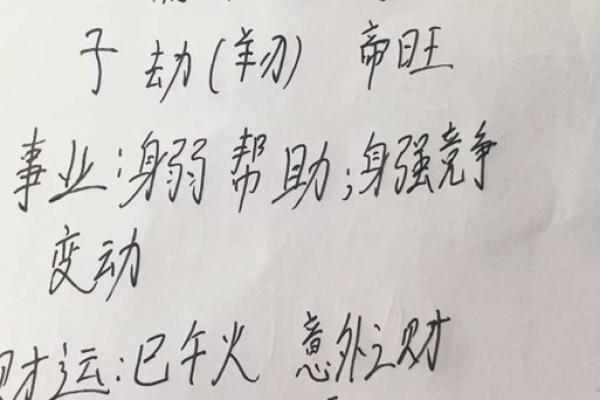 子 劫(羊刃) 帝旺
事业:身弱帮助;身强竞争
变动
财运:巳午火 意外之财